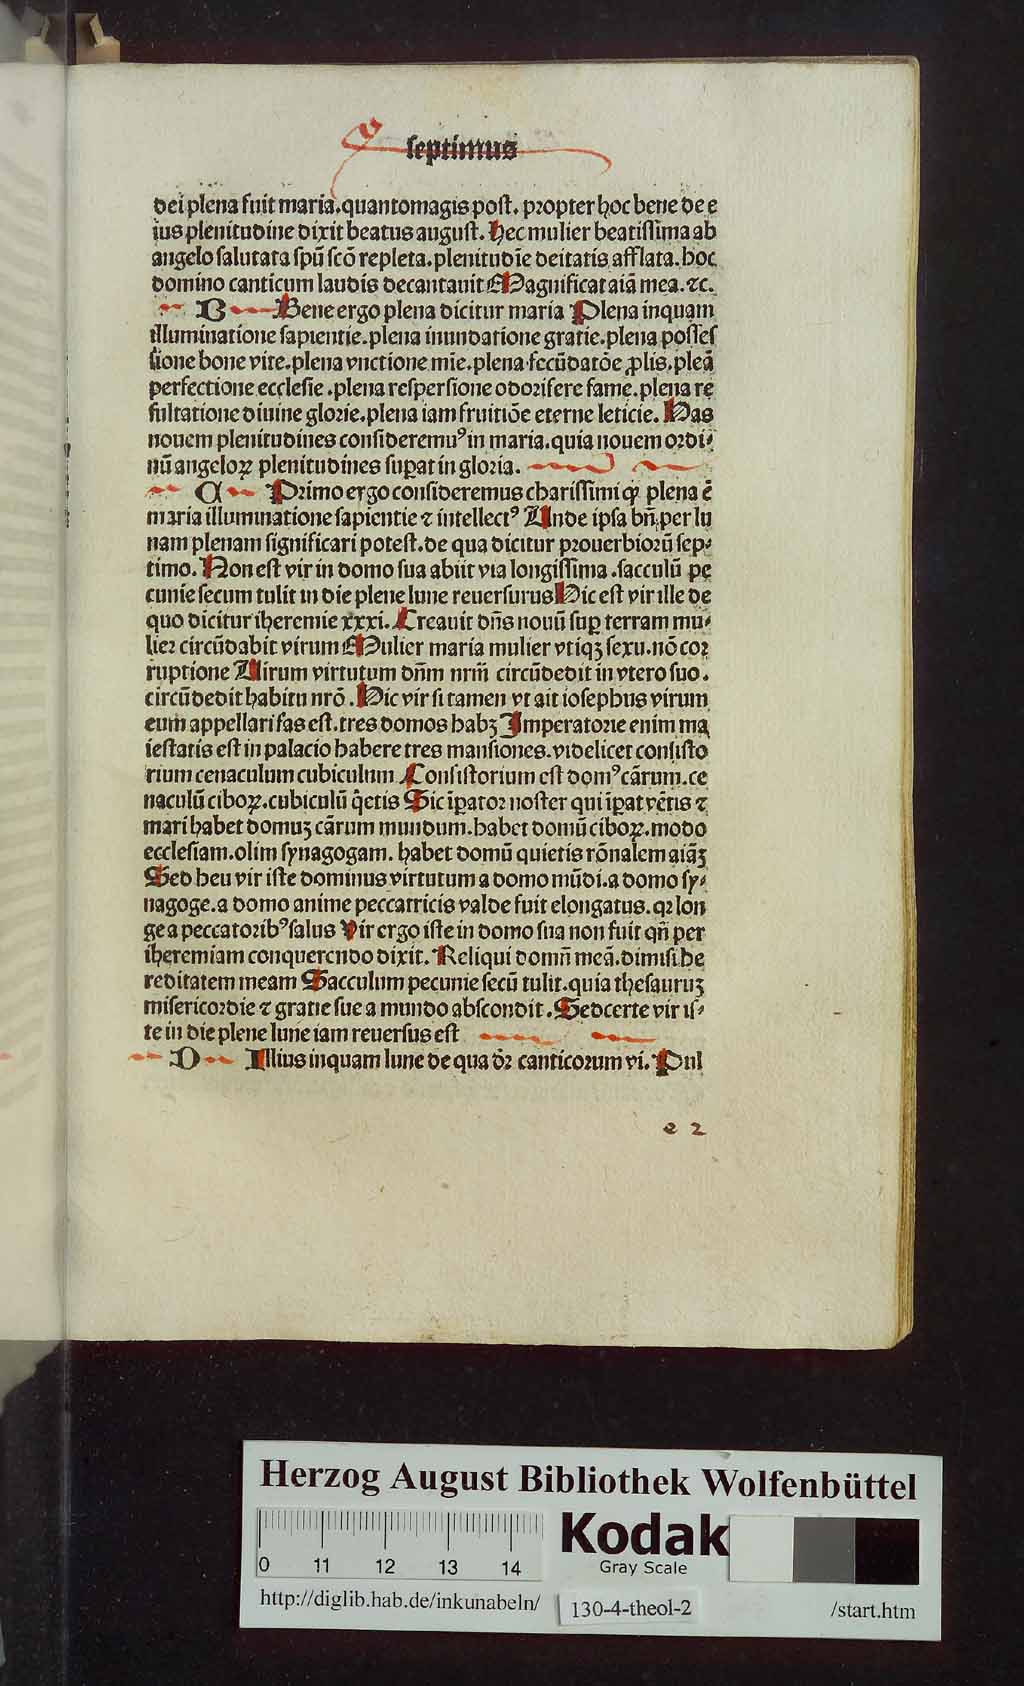 septimus
dei plena fuit maria.quantomagis post. propter hoc bene de e
ius plenitudine dixit beatus august. Hec mulier beatissima ab
angelo salutata spū scō repleta.plenitudīe deitatis afflata.hoc
domino canticum laudis decantauit Magnificat aiā mea.⁊c.
B Bene ergo plena dicitur maria Plena inquam
illuminatione sapientie.plena inundatione gratie.plena posses
sione bone vite.plena vnctione mīe.plena fecūdatōe ꝓlis.pleā
perfectione ecclesie.plena respersione odorifere fame.plena re
sultatione diuine glorie.plena iam fruitiōe eterne leticie. Has
nouem plenitudines consideremuꝰ in maria.quia nouem ordi⸗
nū angeloꝝ plenitudines suꝑat in gloria.
C Primo ergo consideremus charissimi ꝙ plena ē
maria illuminatione sapientie ⁊ intellectꝰ Unde ipsa bn̄ per lu
nam plenam significari potest.de qua dicitur prouerbiorū sep⸗
timo. Non est vir in domo sua abiit via longissima.sacculū pe
cunie secum tulit in die plene lune reuersurus Hic est vir ille de
quo dicitur iheremie xxxi. Creauit dn̄s nouū suꝑ terram mu⸗
lier circūdabit virum Mulier maria mulier vtiqꝫ sexu.nō cor
ruptione Uirum virtutum dn̄m nrm̄ circūdedit in vtero suo.
circūdedit habitu nrō. Hic vir si tamen vt ait iosephus virum
eum appellari fas est.tres domos habꝫ Imperatorie enim ma
iestatis est in palacio habere tres mansiones.videlicet consisto
rium cenaculum cubiculum Consistorium est domꝰ cārum.ce
naculū ciboꝝ.cubiculū q̄etis Sic īꝑator noster qui īꝑat vētis ⁊
mari habet domuꝫ cārum mundum.habet domū ciboꝝ.modo
ecclesiam.olim synagogam. habet domū quietis rōnalem aiāꝫ
Sed heu vir iste dominus virtutum a domo mūdi.a domo sy⸗
nagoge.a domo anime peccatricis valde fuit elongatus.qꝛ lon
ge a peccatoribꝰ salus Vir ergo iste in domo sua non fuit qn̄ per
iheremiam conquerendo dixit. Reliqui domū meā.dimisi he
reditatem meam Sacculum pecunie secū tulit.quia thesauruꝫ
misericordie ⁊ gratie sue a mundo abscondit. Sed certe vir is⸗
te in die plene lune iam reuersus est
D Illius inquam lune de qua dr̄ canticorum vi. Pul
e 2
Herzog August Bibliothek Wolfenbüttel
0 11 12 13 14
Kodak
Gray Scale
http://diglib.hab.de/inkunabeln/
130-4-theol-2
/start.htm